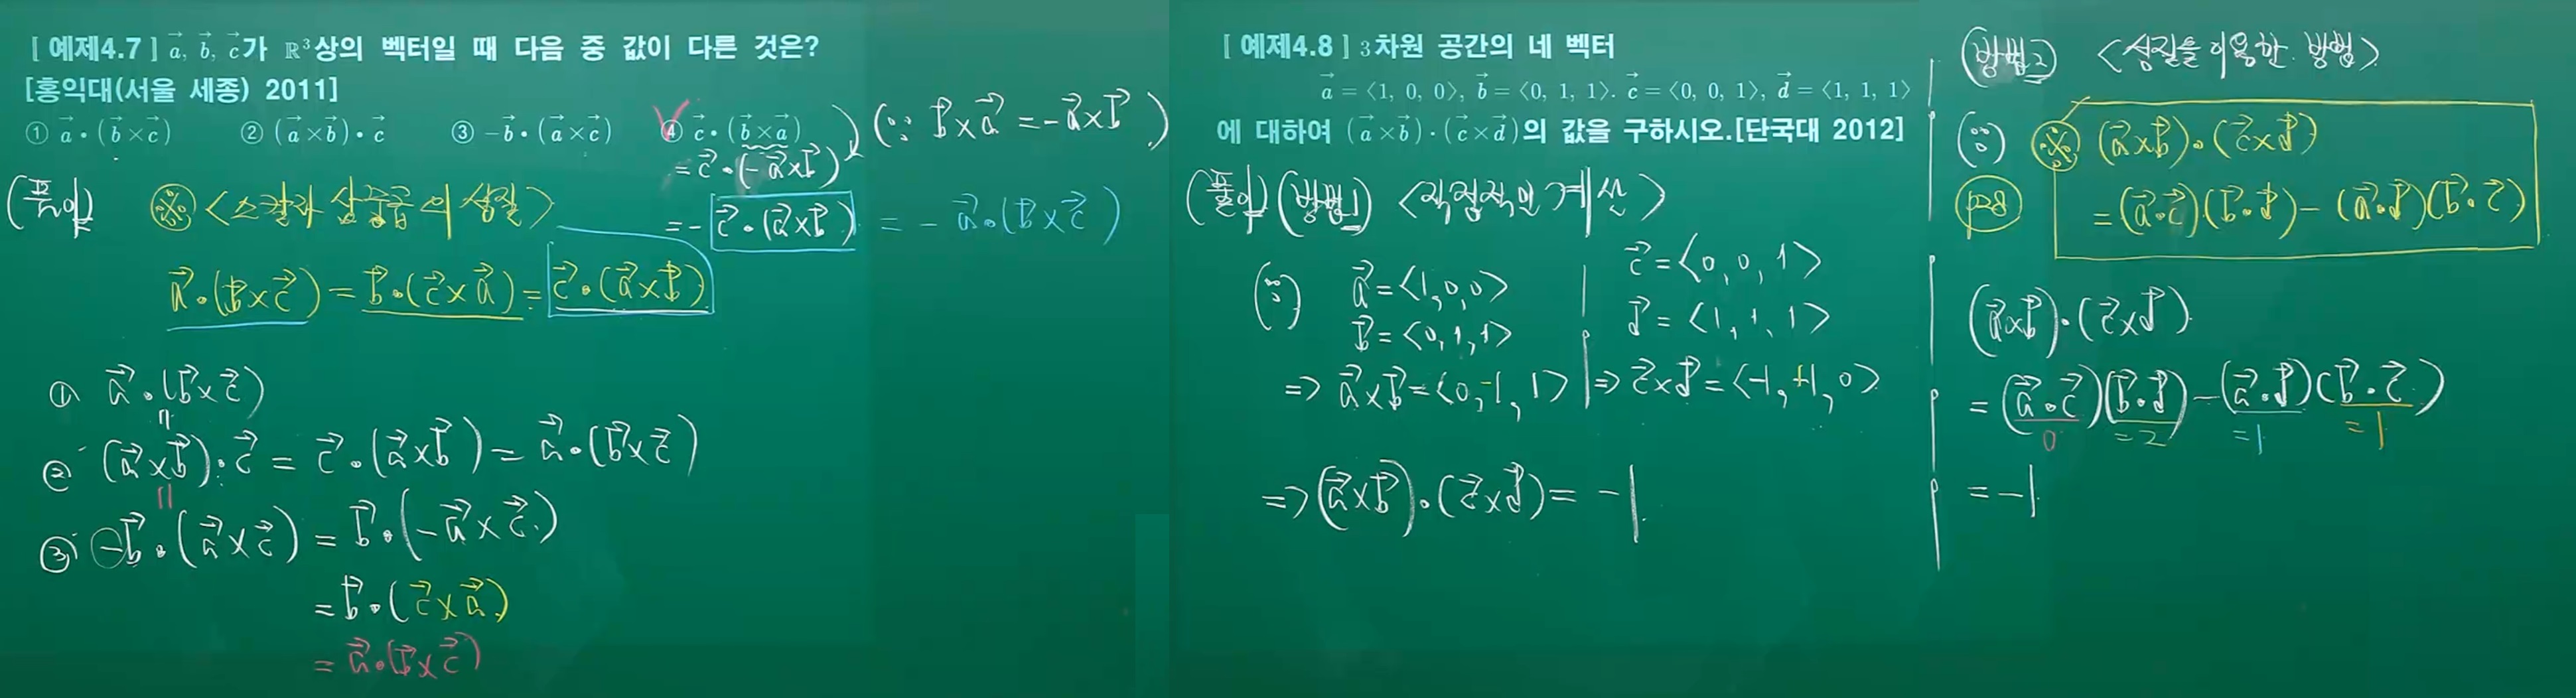 [ 예제4.7 ] $\vec{a}$, $\vec{b}$, $\vec{c}$가 ℝ³상의 벡터일 때 다음 중 값이 다른 것은?
[홍익대(서울 세종) 2011]
① $\vec{a}$ · ($\vec{b}$ × $\vec{c}$) ② ($\vec{a}$ × $\vec{b}$) · $\vec{c}$ ③ −$\vec{b}$ · ($\vec{a}$ × $\vec{c}$) ④ $\vec{c}$ · ($\vec{b}$ × $\vec{a}$)
(∵ $\vec{b}$ × $\vec{a}$ = −$\vec{a}$ × $\vec{b}$)
= $\vec{c}$ · (−$\vec{a}$ × $\vec{b}$)
= − $\vec{c}$ · ($\vec{a}$ × $\vec{b}$) = − $\vec{a}$ · ($\vec{b}$ × $\vec{c}$)
(풀이) ※ <스칼라 삼중곱의 성질>
$\vec{a}$ · ($\vec{b}$ × $\vec{c}$) = $\vec{b}$ · ($\vec{c}$ × $\vec{a}$) = $\vec{c}$ · ($\vec{a}$ × $\vec{b}$)
① $\vec{a}$ · ($\vec{b}$ × $\vec{c}$)
=
② ($\vec{a}$ × $\vec{b}$) · $\vec{c}$ = $\vec{c}$ · ($\vec{a}$ × $\vec{b}$) = $\vec{a}$ · ($\vec{b}$ × $\vec{c}$)
=
③ −$\vec{b}$ · ($\vec{a}$ × $\vec{c}$) = $\vec{b}$ · (−$\vec{a}$ × $\vec{c}$)
= $\vec{b}$ · ($\vec{c}$ × $\vec{a}$)
= $\vec{a}$ · ($\vec{b}$ × $\vec{c}$)
[ 예제4.8 ] 3차원 공간의 네 벡터
$\vec{a}$ = ⟨1, 0, 0⟩, $\vec{b}$ = ⟨0, 1, 1⟩. $\vec{c}$ = ⟨0, 0, 1⟩, $\vec{d}$ = ⟨1, 1, 1⟩
에 대하여 ($\vec{a}$ × $\vec{b}$) · ($\vec{c}$ × $\vec{d}$)의 값을 구하시오.[단국대 2012]
(풀이) (방법1) <직접적인 계산>
(∵) $\vec{a}$ = <1, 0, 0> $\vec{c}$ = <0, 0, 1>
$\vec{b}$ = <0, 1, 1> $\vec{d}$ = <1, 1, 1>
⇒ $\vec{a}$ × $\vec{b}$ = <0, -1, 1> ⇒ $\vec{c}$ × $\vec{d}$ = <-1, +1, 0>
⇒ ($\vec{a}$ × $\vec{b}$) · ($\vec{c}$ × $\vec{d}$) = −1
(방법2) <성질을 이용한 방법>
(∵) ※ ($\vec{a}$ × $\vec{b}$) · ($\vec{c}$ × $\vec{d}$)
p28 = ($\vec{a}$ · $\vec{c}$)($\vec{b}$ · $\vec{d}$) − ($\vec{a}$ · $\vec{d}$)($\vec{b}$ · $\vec{c}$)
($\vec{a}$ × $\vec{b}$) · ($\vec{c}$ × $\vec{d}$)
= ($\vec{a}$ · $\vec{c}$)($\vec{b}$ · $\vec{d}$) − ($\vec{a}$ · $\vec{d}$)($\vec{b}$ · $\vec{c}$)
0 =2 =1 =1
= −1